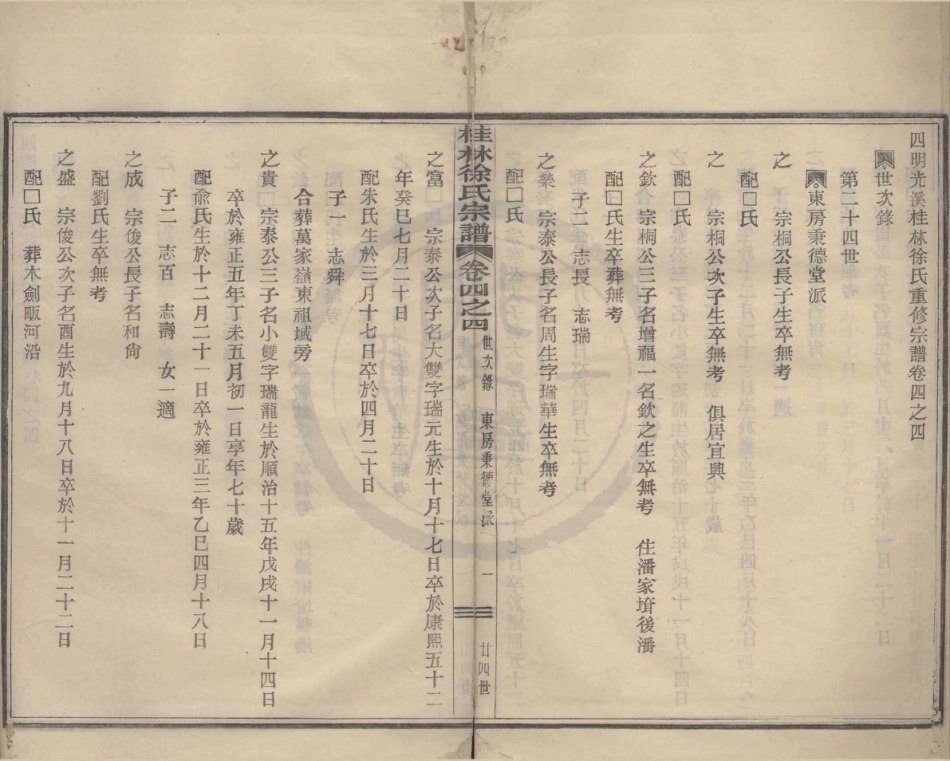 四明光溪桂林徐氏重修宗譜卷四之四
世次錄
第二十四世
東房秉德堂派
之　宗桐公長子生卒無考
配□氏
之　宗桐公次子生卒無考　俱居宜興
配□氏
之欽　宗桐公三子名增福一名欽之生卒無考　住潘家堉後潘
配□氏生卒葬無考
子二　志長　志瑞
之榮　宗泰公長子名周生字瑞華生卒無考
配□氏
桂林徐氏宗譜　卷四之四　世次錄　東房秉德堂派　一　廿四世
之富　宗泰公次子名大雙字瑞元生於十月十七日卒於康熙五十二
年癸巳七月二十日
配朱氏生於三月十七日卒於四月二十日
子一　志舜
合葬萬家嶺東祖域旁
之貴　宗泰公三子名小雙字瑞龍生於順治十五年戊戌十一月十四日
卒於雍正五年丁未五月初一日享年七十歲
配俞氏生於十二月二十一日卒於雍正三年乙巳四月十八日
子二　志百　志壽　女一適
之成　宗俊公長子名和尙
配劉氏生卒無考
之盛　宗俊公次子名酉生於九月十八日卒於十一月二十二日
配□氏　葬木劍畈河沿